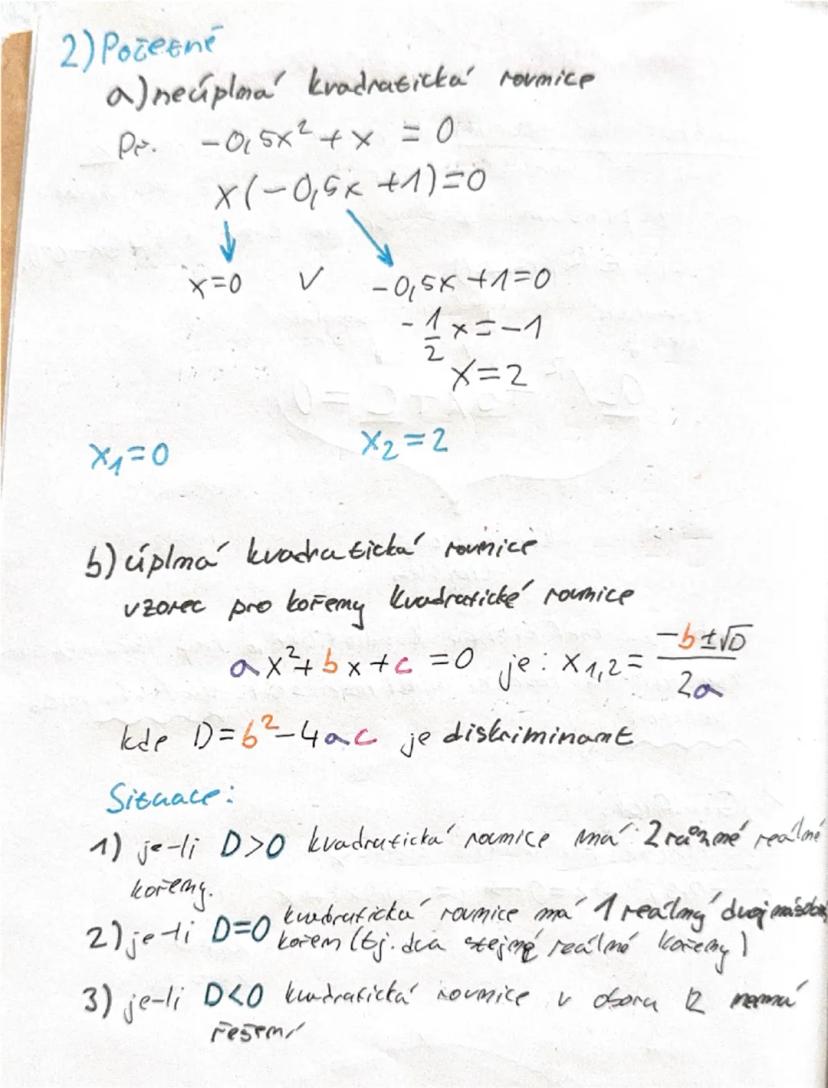 2) Početně
a) neúplná kvadratická rovnice
Př. -0,5x² + x = 0
x(-0,5x +1)=0
x=0 ∨ -0,5x +1=0
-1/2 x = -1
x=2
x₁=0 x₂=2
b) úplná kvadratická rovnice
vzorec pro kořeny kvadratické rovnice
ax²+bx+c=0 je: x₁,₂= (-b±√D)/2a
kde D=b²-4ac je diskriminant
Situace:
1) je-li D>0 kvadratická rovnice má 2 různé reálné
kořeny.
2) je-li D=0 kvadratická rovnice má 1 reálný dvojnásobný
kořen (tj. dva stejné reálné kořeny)
3) je-li D<0 kvadratická rovnice v oboru R nemá
řešení